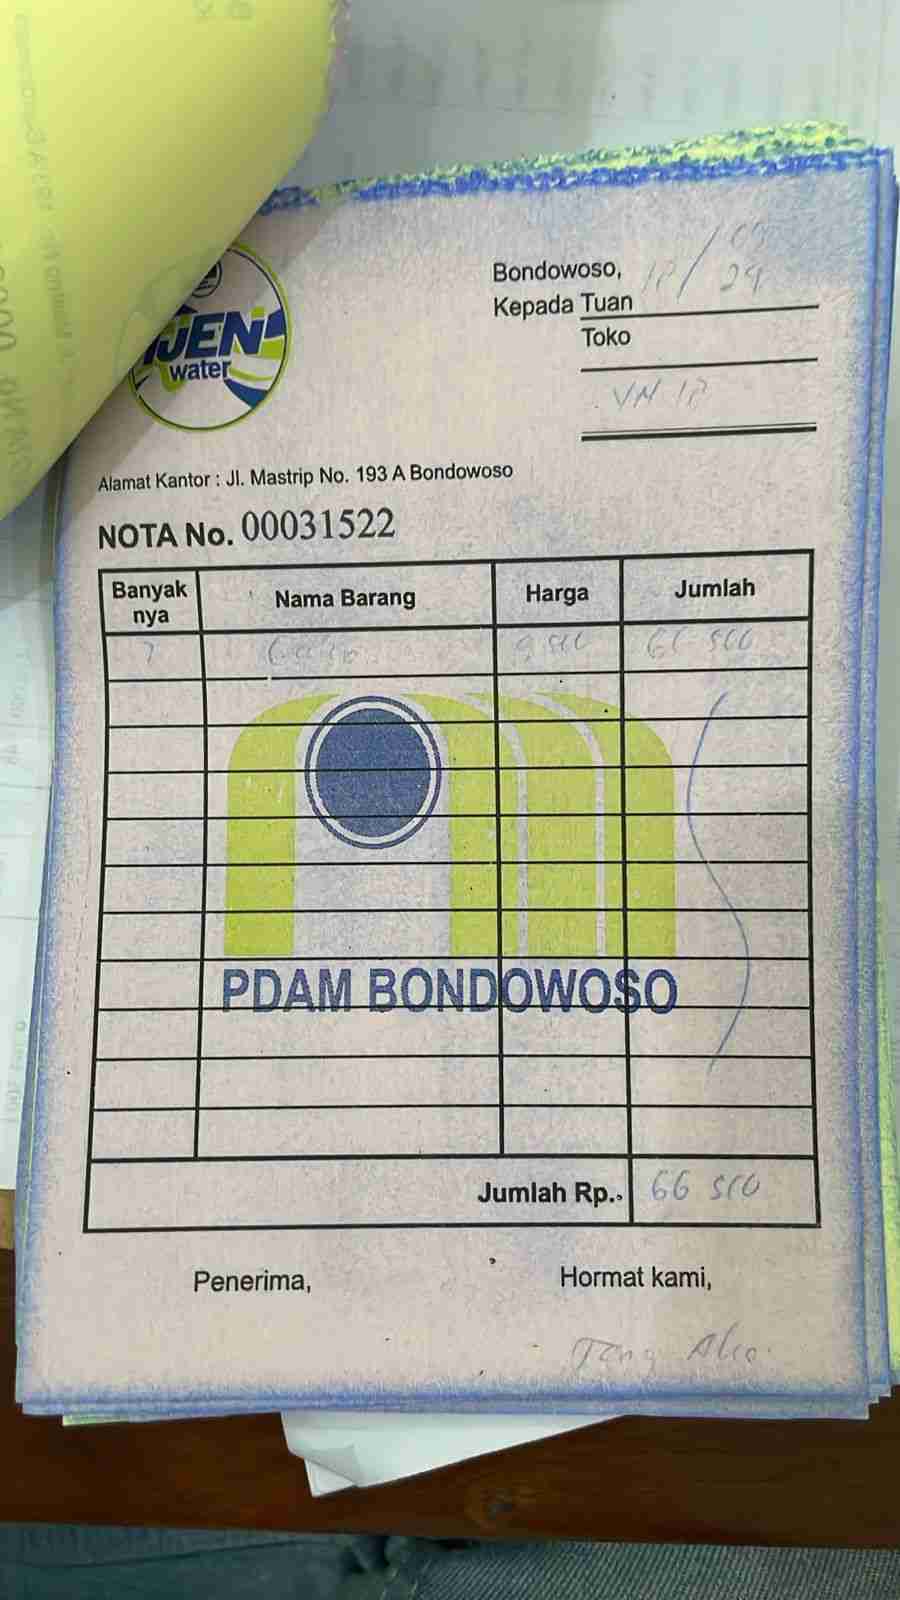 IJEN
water
Bondowoso, 12/09 24
Kepada Tuan
Toko
VM 12
Alamat Kantor : Jl. Mastrip No. 193 A Bondowoso
NOTA No. 00031522
Banyak nya Nama Barang Harga Jumlah
7 9 500 66 500
PDAM BONDOWOSO
Jumlah Rp. 66 500
Penerima, Hormat kami,